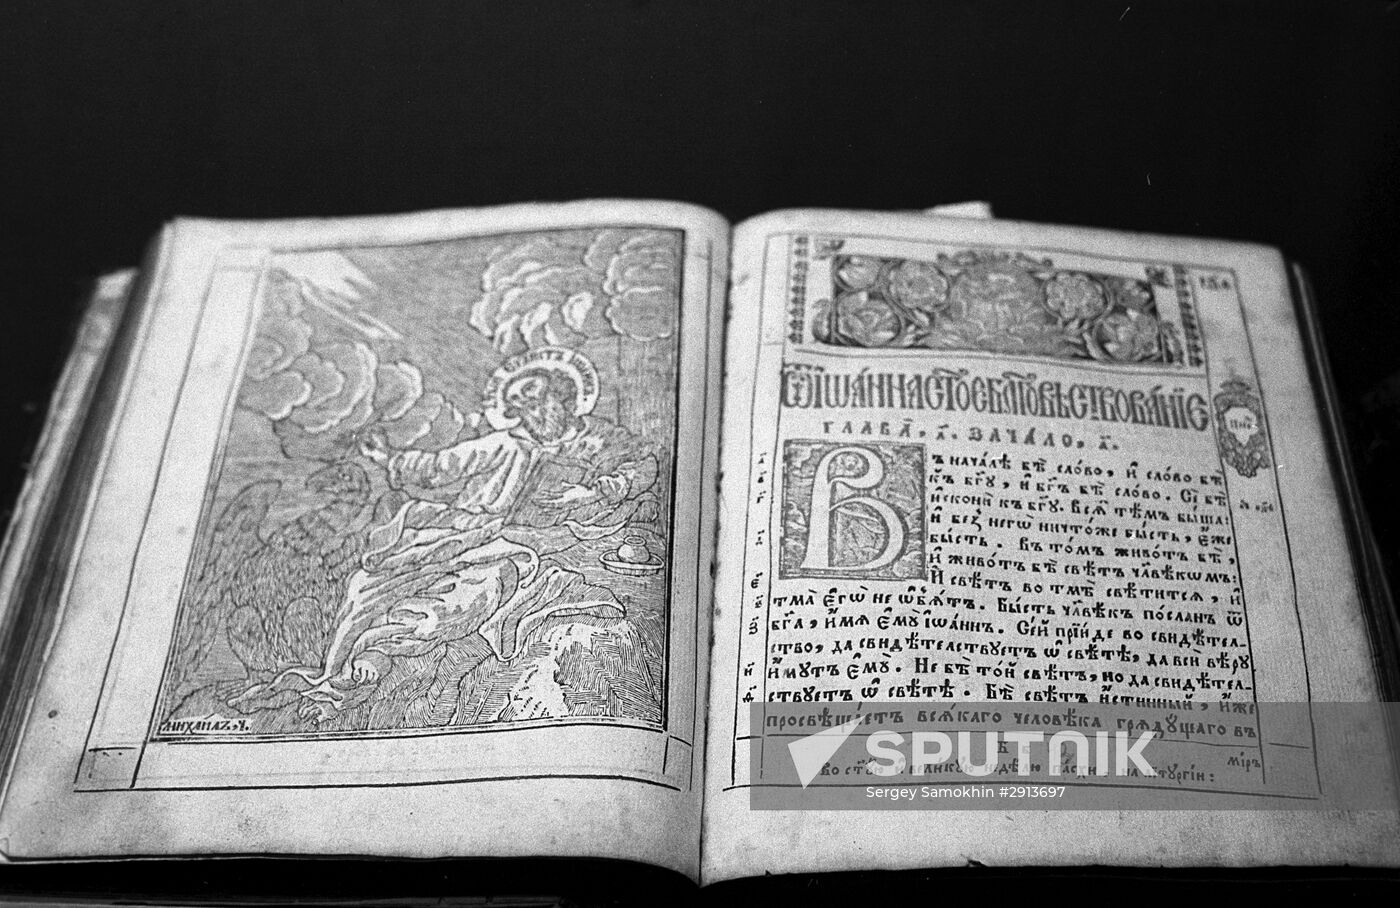 МИХАИЛЪ. Ч.
ѾІѠА́ННАСТО́ЕБЛ҃ГОВѢСТВОВА́НІЕ
ГЛАВА̀, А҃. ЗАЧА́ЛО, А҃.
Въ нача́лѣ бѣ̀ сло́во, и҆ сло́во бѣ̀
къ бг҃ꙋ, и҆ бг҃ъ бѣ̀ сло́во. Се́й бѣ̀
и҆сконѝ къ бг҃ꙋ. Всѧ̑ тѣ́мъ бы́ша:
и҆ без̾ негѡ̀ ничто́же бы́сть, є҆́же
бы́сть. Въ то́мъ живо́тъ бѣ̀,
и҆ живо́тъ бѣ̀ свѣ́тъ чл҃вѣкѡмъ:
И҆ свѣ́тъ во тмѣ̀ свѣ́титсѧ, и҆
тма̀ є҆гѡ̀ не ѡ҆б̾ѧ́тъ. Бы́сть чл҃вѣ́къ по́сланъ ѿ
бг҃а, и҆́мѧ є҆мꙋ̀ і҆ѡа́ннъ. Се́й прїи́де во свидѣ́тел-
ство, да свидѣ́телствꙋетъ ѡ҆ свѣ́тѣ, да всѝ вѣ́рꙋ
и҆́мꙋтъ є҆мꙋ̀. Не бѣ̀ то́й свѣ́тъ, но да свидѣ́тел-
ствꙋетъ ѡ҆ свѣ́тѣ. Бѣ̀ свѣ́тъ и҆́стинный, и҆́же
просвѣща́етъ всѧ́каго человѣ́ка грѧдꙋ́щаго въ
мі́ръ
во ст҃ꙋ́ю и҆ вели́кꙋю недѣ́лю па́схи, на лїтꙋргі́и:
SPUTNIK
Sergey Samokhin #2913697